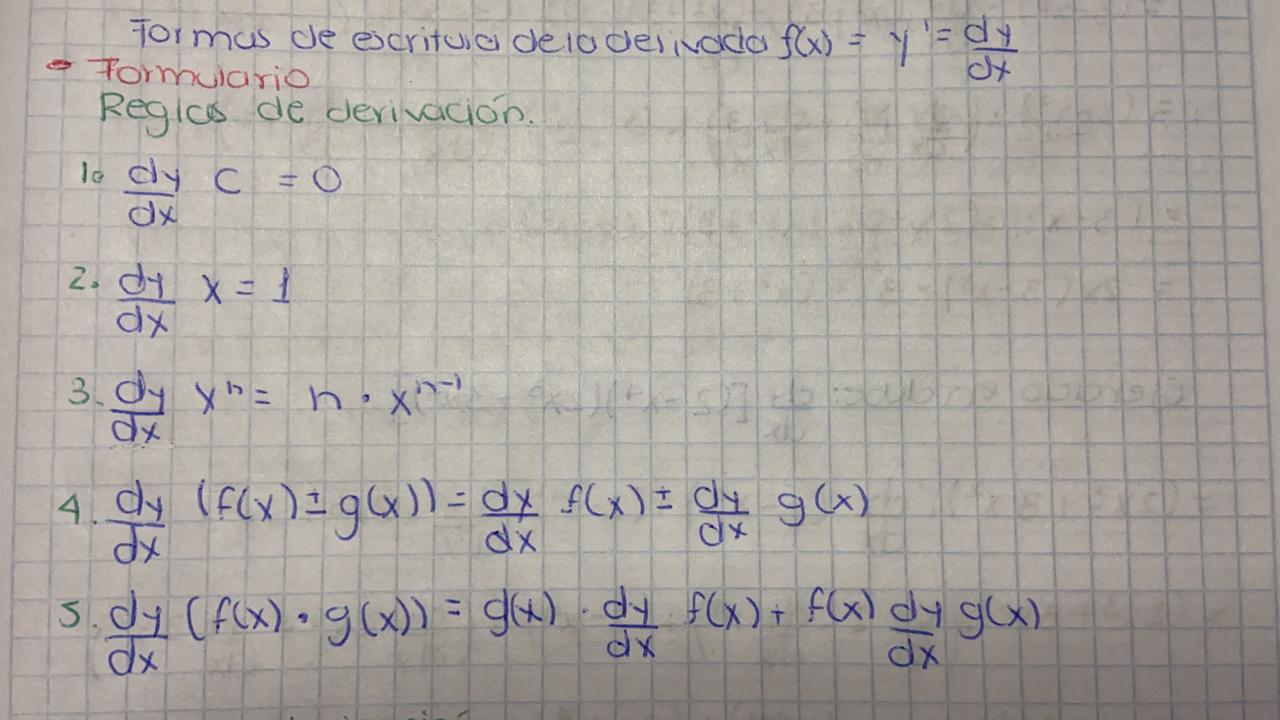 Formas de escritura de la derivada f(x) = y' = dy/dx
Formulario
Reglas de derivación.
1. dy/dx C = 0
2. dy/dx x = 1
3. dy/dx xⁿ = n · xⁿ⁻¹
4. dy/dx (f(x) ± g(x)) = dx/dx f(x) ± dy/dx g(x)
5. dy/dx (f(x) · g(x)) = g(x) · dy/dx f(x) + f(x) dy/dx g(x)